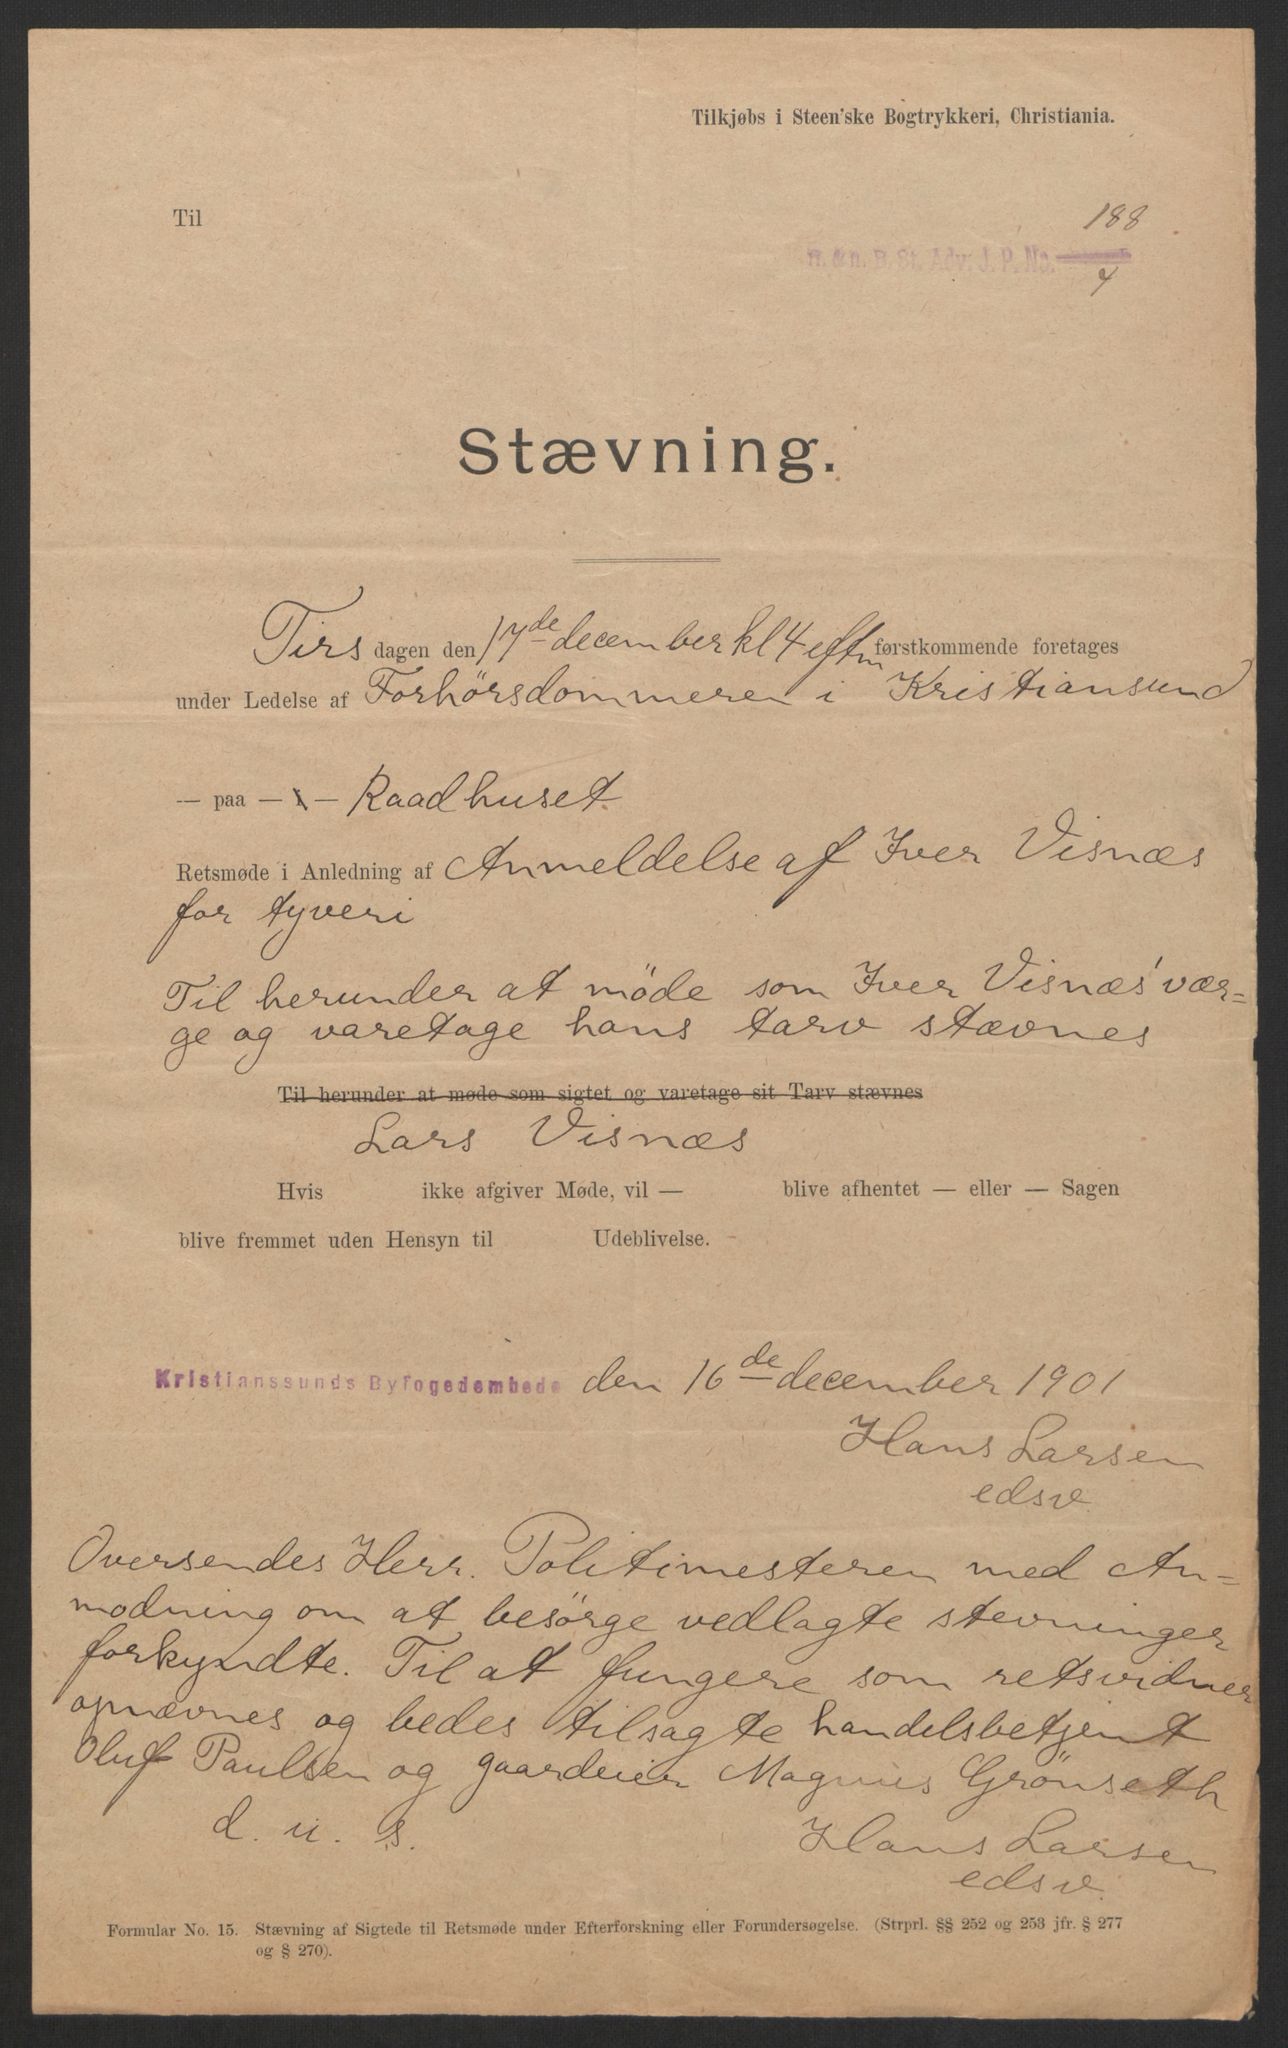 Tilkjøbs i Steen'ske Bogtrykkeri, Christiania.
Til
188
R. & n. B. St. Adv. J. P. No.
4
Stævning.
Tirsdagen den 17de december kl 4 eftm førstkommende foretages
under Ledelse af Forhörsdommeren i Kristiansund
— paa — i — Raadhuset
Retsmøde i Anledning af Anmeldelse af Iver Visnæs
for tyveri
Til herunder at möde som Iver Visnæs' vær=
ge og varetage hans tarv stævnes
Til herunder at møde som sigtet og varetage sit Tarv stævnes
Lars Visnæs
Hvis ikke afgiver Møde, vil — blive afhentet — eller — Sagen
blive fremmet uden Hensyn til Udeblivelse.
Kristianssunds Byfogedembede den 16de december 1901
Hans Larsen
edsv.
Oversendes Herr. Politimesteren med An=
modning om at besörge vedlagte stevninger
forkyndte. Til at fungere som retsvidner
opnævnes og bedes tilsagte handelsbetjent
Oluf Paulsen og gaardeier Magnus Grönseth
d. u. s.
Hans Larsen
edsv.
Formular No. 15. Stævning af Sigtede til Retsmøde under Efterforskning eller Forundersøgelse. (Strprl. §§ 252 og 253 jfr. § 277
og § 270).